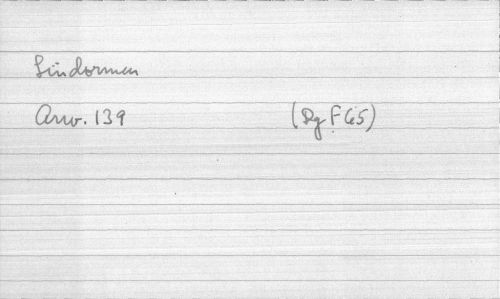 Lindormen
Arw. 139 (Dg F 65)